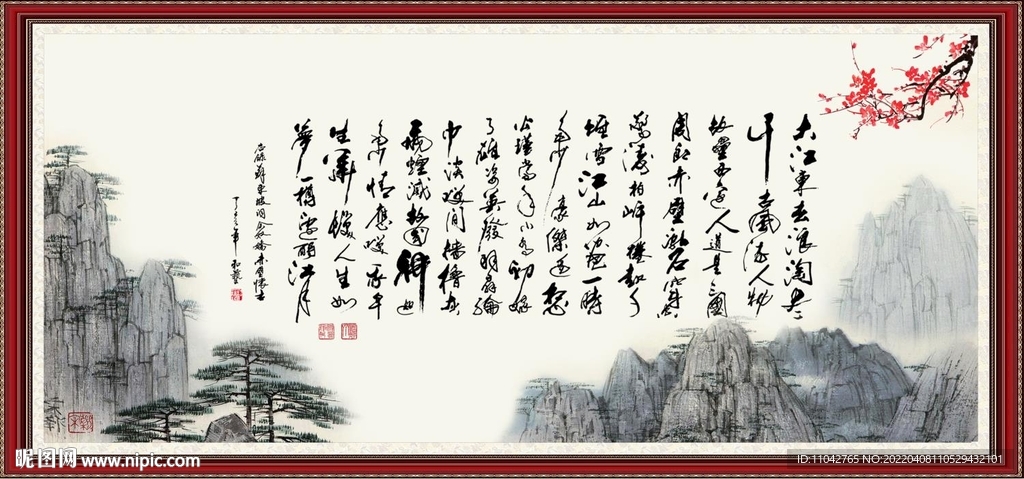 大江東去浪淘盡
千古風流人物
故壘西邊人道是三國
周郎赤壁亂石穿空
驚濤拍岸捲起千
堆雪江山如畫一時
多少豪傑遙想
公瑾當年小喬初嫁
了雄姿英發羽扇綸
巾談笑間檣櫓灰
飛煙滅故國神遊
多情應笑我早
生華髮人生如
夢一樽還酹江月
蘇東坡詞念奴嬌赤壁懷古
昵图网 www.nipic.com
ID:11042765 NO:20220408110529432101